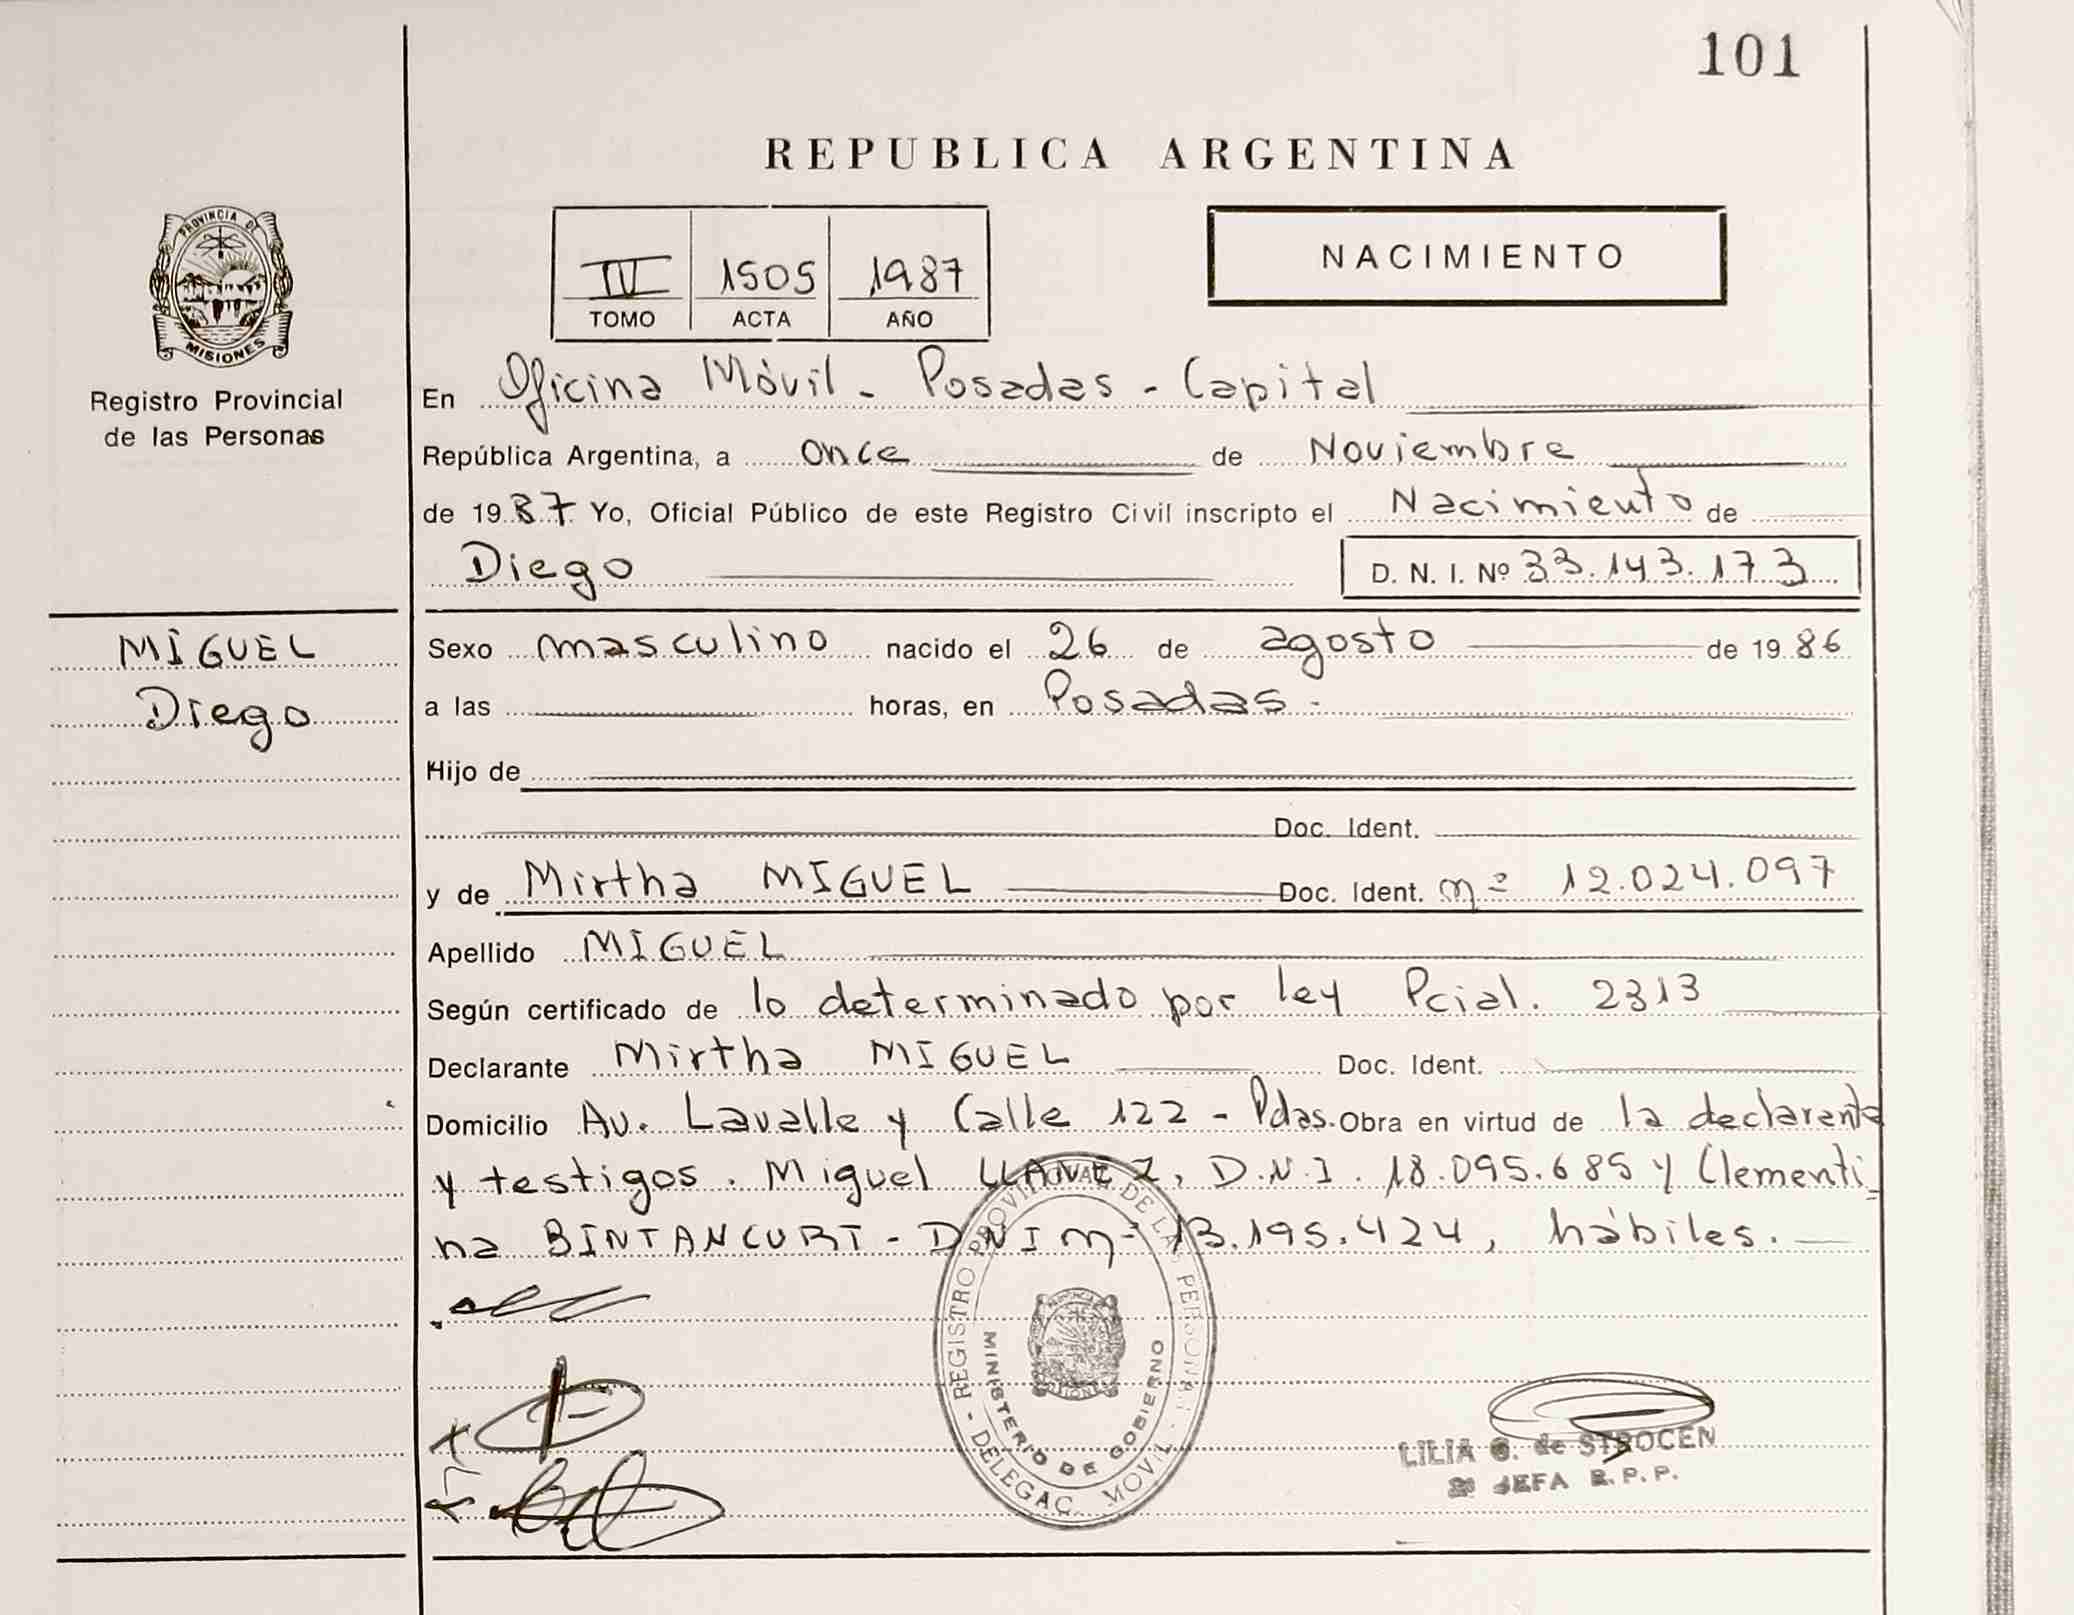 101
REPUBLICA ARGENTINA
IV 1505 1987
TOMO ACTA AÑO
NACIMIENTO
PROVINCIA DE
MISIONES
Registro Provincial
de las Personas
En Oficina Móvil - Posadas - Capital
República Argentina, a once de Noviembre
de 1987 Yo, Oficial Público de este Registro Civil inscripto el Nacimiento de
Diego D. N. I. Nº 33.143.173
MIGUEL
Diego
Sexo masculino nacido el 26 de agosto de 1986
a las horas, en Posadas -
Hijo de
Doc. Ident.
y de Mirtha MIGUEL Doc. Ident. nº 12.024.097
Apellido MIGUEL
Según certificado de lo determinado por ley Pcial. 2313
Declarante Mirtha MIGUEL Doc. Ident.
Domicilio Av. Lavalle y Calle 122 - Pdas. Obra en virtud de la declarante
y testigos. Miguel LLANEZ, D.N.I. 18.095.685 y Clementi_
na BINTANCURT - DNI nº 13.195.424, hábiles.
REGISTRO PROVINCIAL DE LAS PERSONAS - DELEGAC. MOVIL -
MINISTERIO DE GOBIERNO
LILIA G. de STROCEN
JEFA R.P.P.